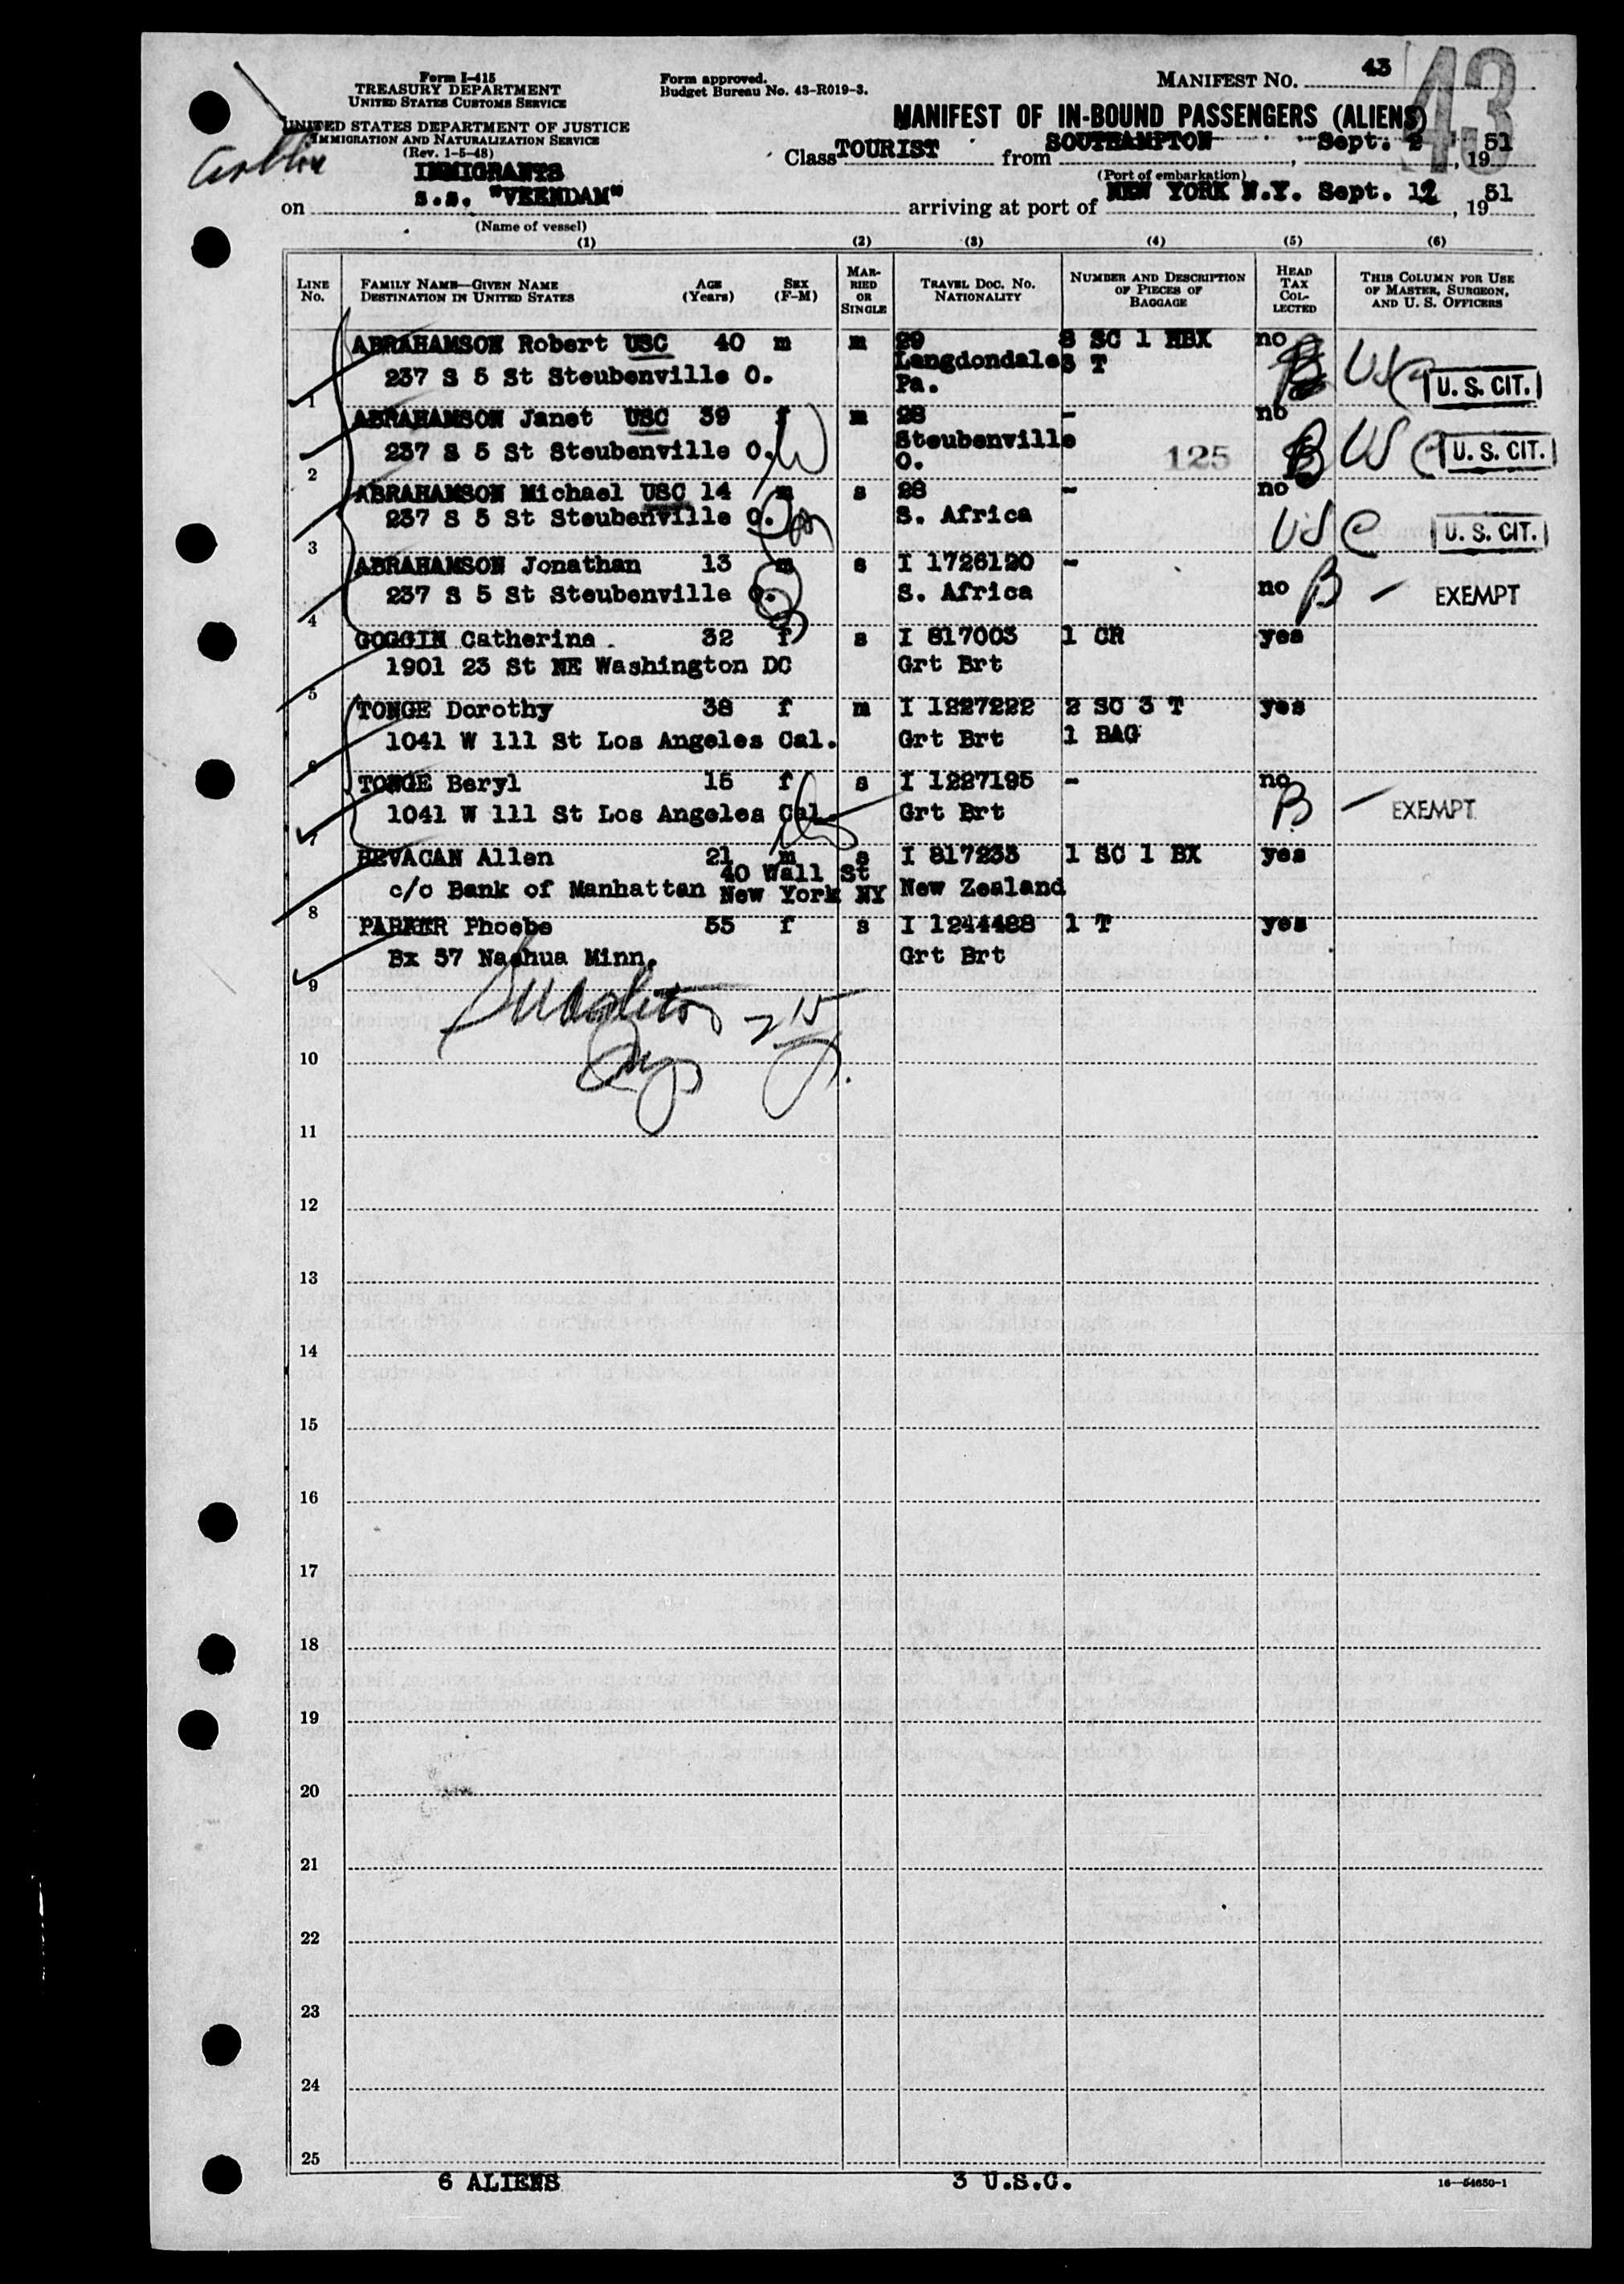 Form I-415
TREASURY DEPARTMENT
UNITED STATES CUSTOMS SERVICE
UNITED STATES DEPARTMENT OF JUSTICE
IMMIGRATION AND NATURALIZATION SERVICE
(Rev. 1-5-48)
Form approved.
Budget Bureau No. 43-R019-3.
MANIFEST NO. 43
43
MANIFEST OF IN-BOUND PASSENGERS (ALIENS)
IMMIGRANTS
Class TOURIST from SOUTHAMPTON, Sept. 2, 1951
(Port of embarkation)
on s.s. "VEENDAM" arriving at port of NEW YORK N.Y. Sept. 12, 1951
(Name of vessel)
(1) (2) (3) (4) (5) (6)
LINE No. FAMILY NAME—GIVEN NAME DESTINATION IN UNITED STATES AGE (Years) SEX (F-M) MARRIED OR SINGLE TRAVEL DOC. NO. NATIONALITY NUMBER AND DESCRIPTION OF PIECES OF BAGGAGE HEAD TAX COLLECTED THIS COLUMN FOR USE OF MASTER, SURGEON, AND U. S. OFFICERS
ABRAHAMSON Robert USC 40 m m 29 8 SC 1 HBX no
237 S 5 St Steubenville O. Langdondale 3 T
Pa. B USC U. S. CIT.
1
ABRAHAMSON Janet USC 39 f m 28 - no
237 S 5 St Steubenville O. Steubenville
O. 125 B USC U. S. CIT.
2
ABRAHAMSON Michael USC 14 m s 28 - no
237 S 5 St Steubenville O. S. Africa USC U. S. CIT.
3
ABRAHAMSON Jonathan 13 m s I 1726120 -
237 S 5 St Steubenville O. S. Africa no B - EXEMPT
4
GOGGIN Catherine. 32 f s I 817003 1 CR yes
1901 23 St NE Washington DC Grt Brt
5
TONGE Dorothy 38 f m I 1227222 2 SC 3 T yes
1041 W 111 St Los Angeles Cal. Grt Brt 1 BAG
6
TONGE Beryl 15 f s I 1227195 - no
1041 W 111 St Los Angeles Cal. Grt Brt B - EXEMPT
7
HEVACAN Allen 21 m s I 817233 1 SC 1 BX yes
40 Wall St
c/o Bank of Manhattan New York NY New Zealand
8
PARKER Phoebe 55 f s I 1244488 1 T yes
Bx 57 Nashua Minn. Grt Brt
9
10
11
12
13
14
15
16
17
18
19
20
21
22
23
24
25
6 ALIENS 3 U.S.C.
16—54650-1